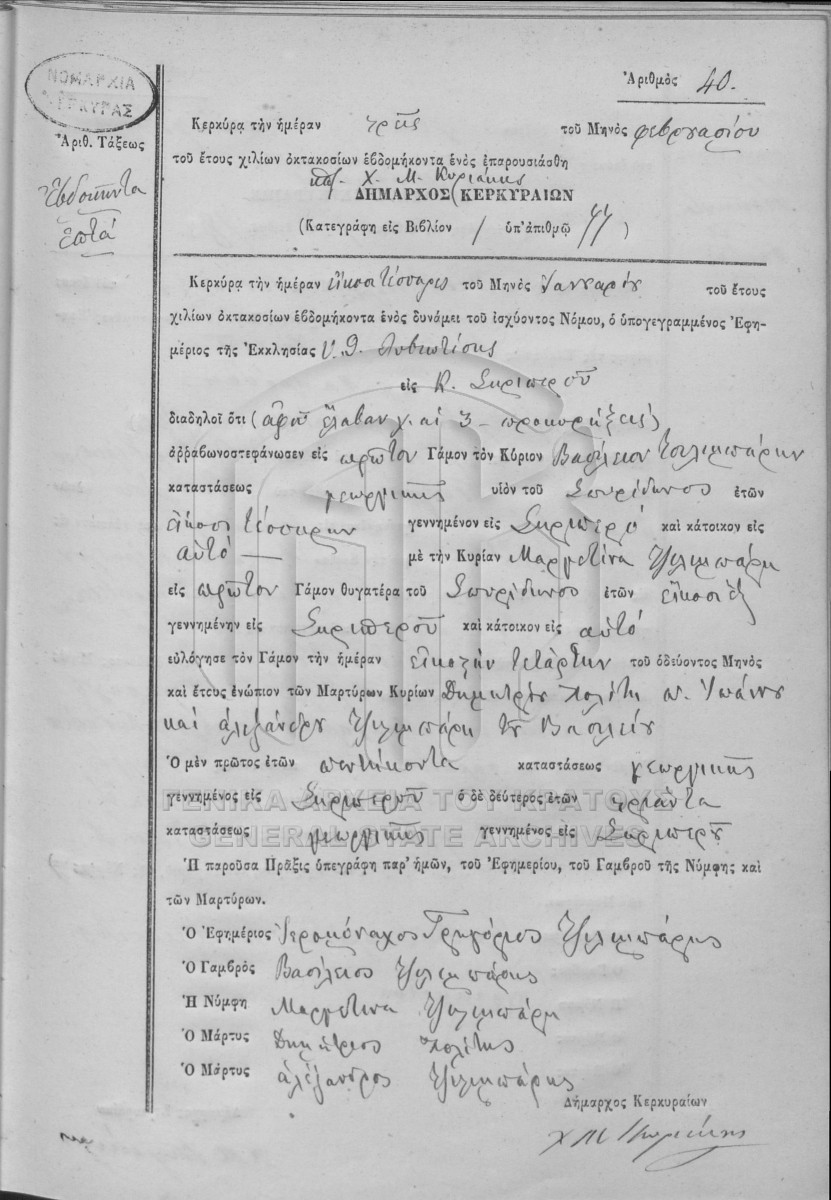 ΝΟΜΑΡΧΙΑ
ΚΕΡΚΥΡΑΣ
Ἀριθμὸς 40.
Ἀριθ. Τάξεως
Ἑβδομήντα
ἑπτά
Κερκύρᾳ τὴν ἡμέραν τρεῖς τοῦ Μηνὸς φεβρουαρίου
τοῦ ἔτους χιλίων ὀκτακοσίων ἑβδομήκοντα ἑνὸς ἐπαρουσιάσθη
Χ. Μ. Κυριάκης
ΔΗΜΑΡΧΟΣ ΚΕΡΚΥΡΑΙΩΝ
(Κατεγράφη εἰς Βιβλίον 1 ὑπ' ἀριθμῷ 77)
Κερκύρᾳ τὴν ἡμέραν εἴκοσι τέσσαρες τοῦ Μηνὸς Ἰανουαρίου τοῦ ἔτους
χιλίων ὀκτακοσίων ἑβδομήκοντα ἑνὸς δυνάμει τοῦ ἰσχύοντος Νόμου, ὁ ὑπογεγραμμένος Ἐφη-
μέριος τῆς Ἐκκλησίας Υ. Θ.
εἰς Κ. Σκριπεροῦ
διαδηλοῖ ὅτι (ἀφοῦ ἔλαβαν χ. αἱ 3 – προκυρήξεις)
ἀῤῥαβωνοστεφάνωσεν εἰς πρῶτον Γάμον τὸν Κύριον Βασίλειον Τζιλιμπάρην
καταστάσεως γεωργικῆς υἱὸν τοῦ Σπυρίδωνος ἐτῶν
εἴκοσι τεσσάρων γεννημένον εἰς Σκριπερό καὶ κάτοικον εἰς
αὐτό — μὲ τὴν Κυρίαν Μαργετίνα Τζιλιμπάρη
εἰς πρῶτον Γάμον θυγατέρα τοῦ Σπυρίδωνος ἐτῶν εἴκοσι ἕξ
γεννημένην εἰς Σκριπεροῦ καὶ κάτοικον εἰς αὐτό
εὐλόγησε τὸν Γάμον τὴν ἡμέραν εἰκοστήν τετάρτην τοῦ ὁδεύοντος Μηνὸς
καὶ ἔτους ἐνώπιον τῶν Μαρτύρων Κυρίων Δημητρίου Πολίτη π. Ἰωάννου
καὶ ἀλεξάνδρου Τζιλιμπάρη τοῦ Βασιλείου
Ὁ μὲν πρῶτος ἐτῶν πεντήκοντα καταστάσεως γεωργικῆς
γεννημένος εἰς Σκριπεροῦ ὁ δὲ δεύτερος ἐτῶν τριάντα
καταστάσεως γεωργικῆς γεννημένος εἰς Σκριπεροῦ
ΓΕΝΙΚΑ ΑΡΧΕΙΑ ΤΟΥ ΚΡΑΤΟΥΣ
GENERAL STATE ARCHIVES
Ἡ παροῦσα Πρᾶξις ὑπεγράφη παρ' ἡμῶν, τοῦ Ἐφημερίου, τοῦ Γαμβροῦ τῆς Νύμφης καὶ
τῶν Μαρτύρων.
Ὁ Ἐφημέριος Ἱερομόναχος Γρηγόριος Τζιλιμπάρης
Ὁ Γαμβρὸς Βασίλειος Τζιλιμπάρης
Ἡ Νύμφη Μαργετίνα Τζιλιμπάρη
Ὁ Μάρτυς Δημήτριος Πολίτης
Ὁ Μάρτυς ἀλέξανδρος Τζιλιμπάρης
Δήμαρχος Κερκυραίων
Χ Μ Κυριάκης